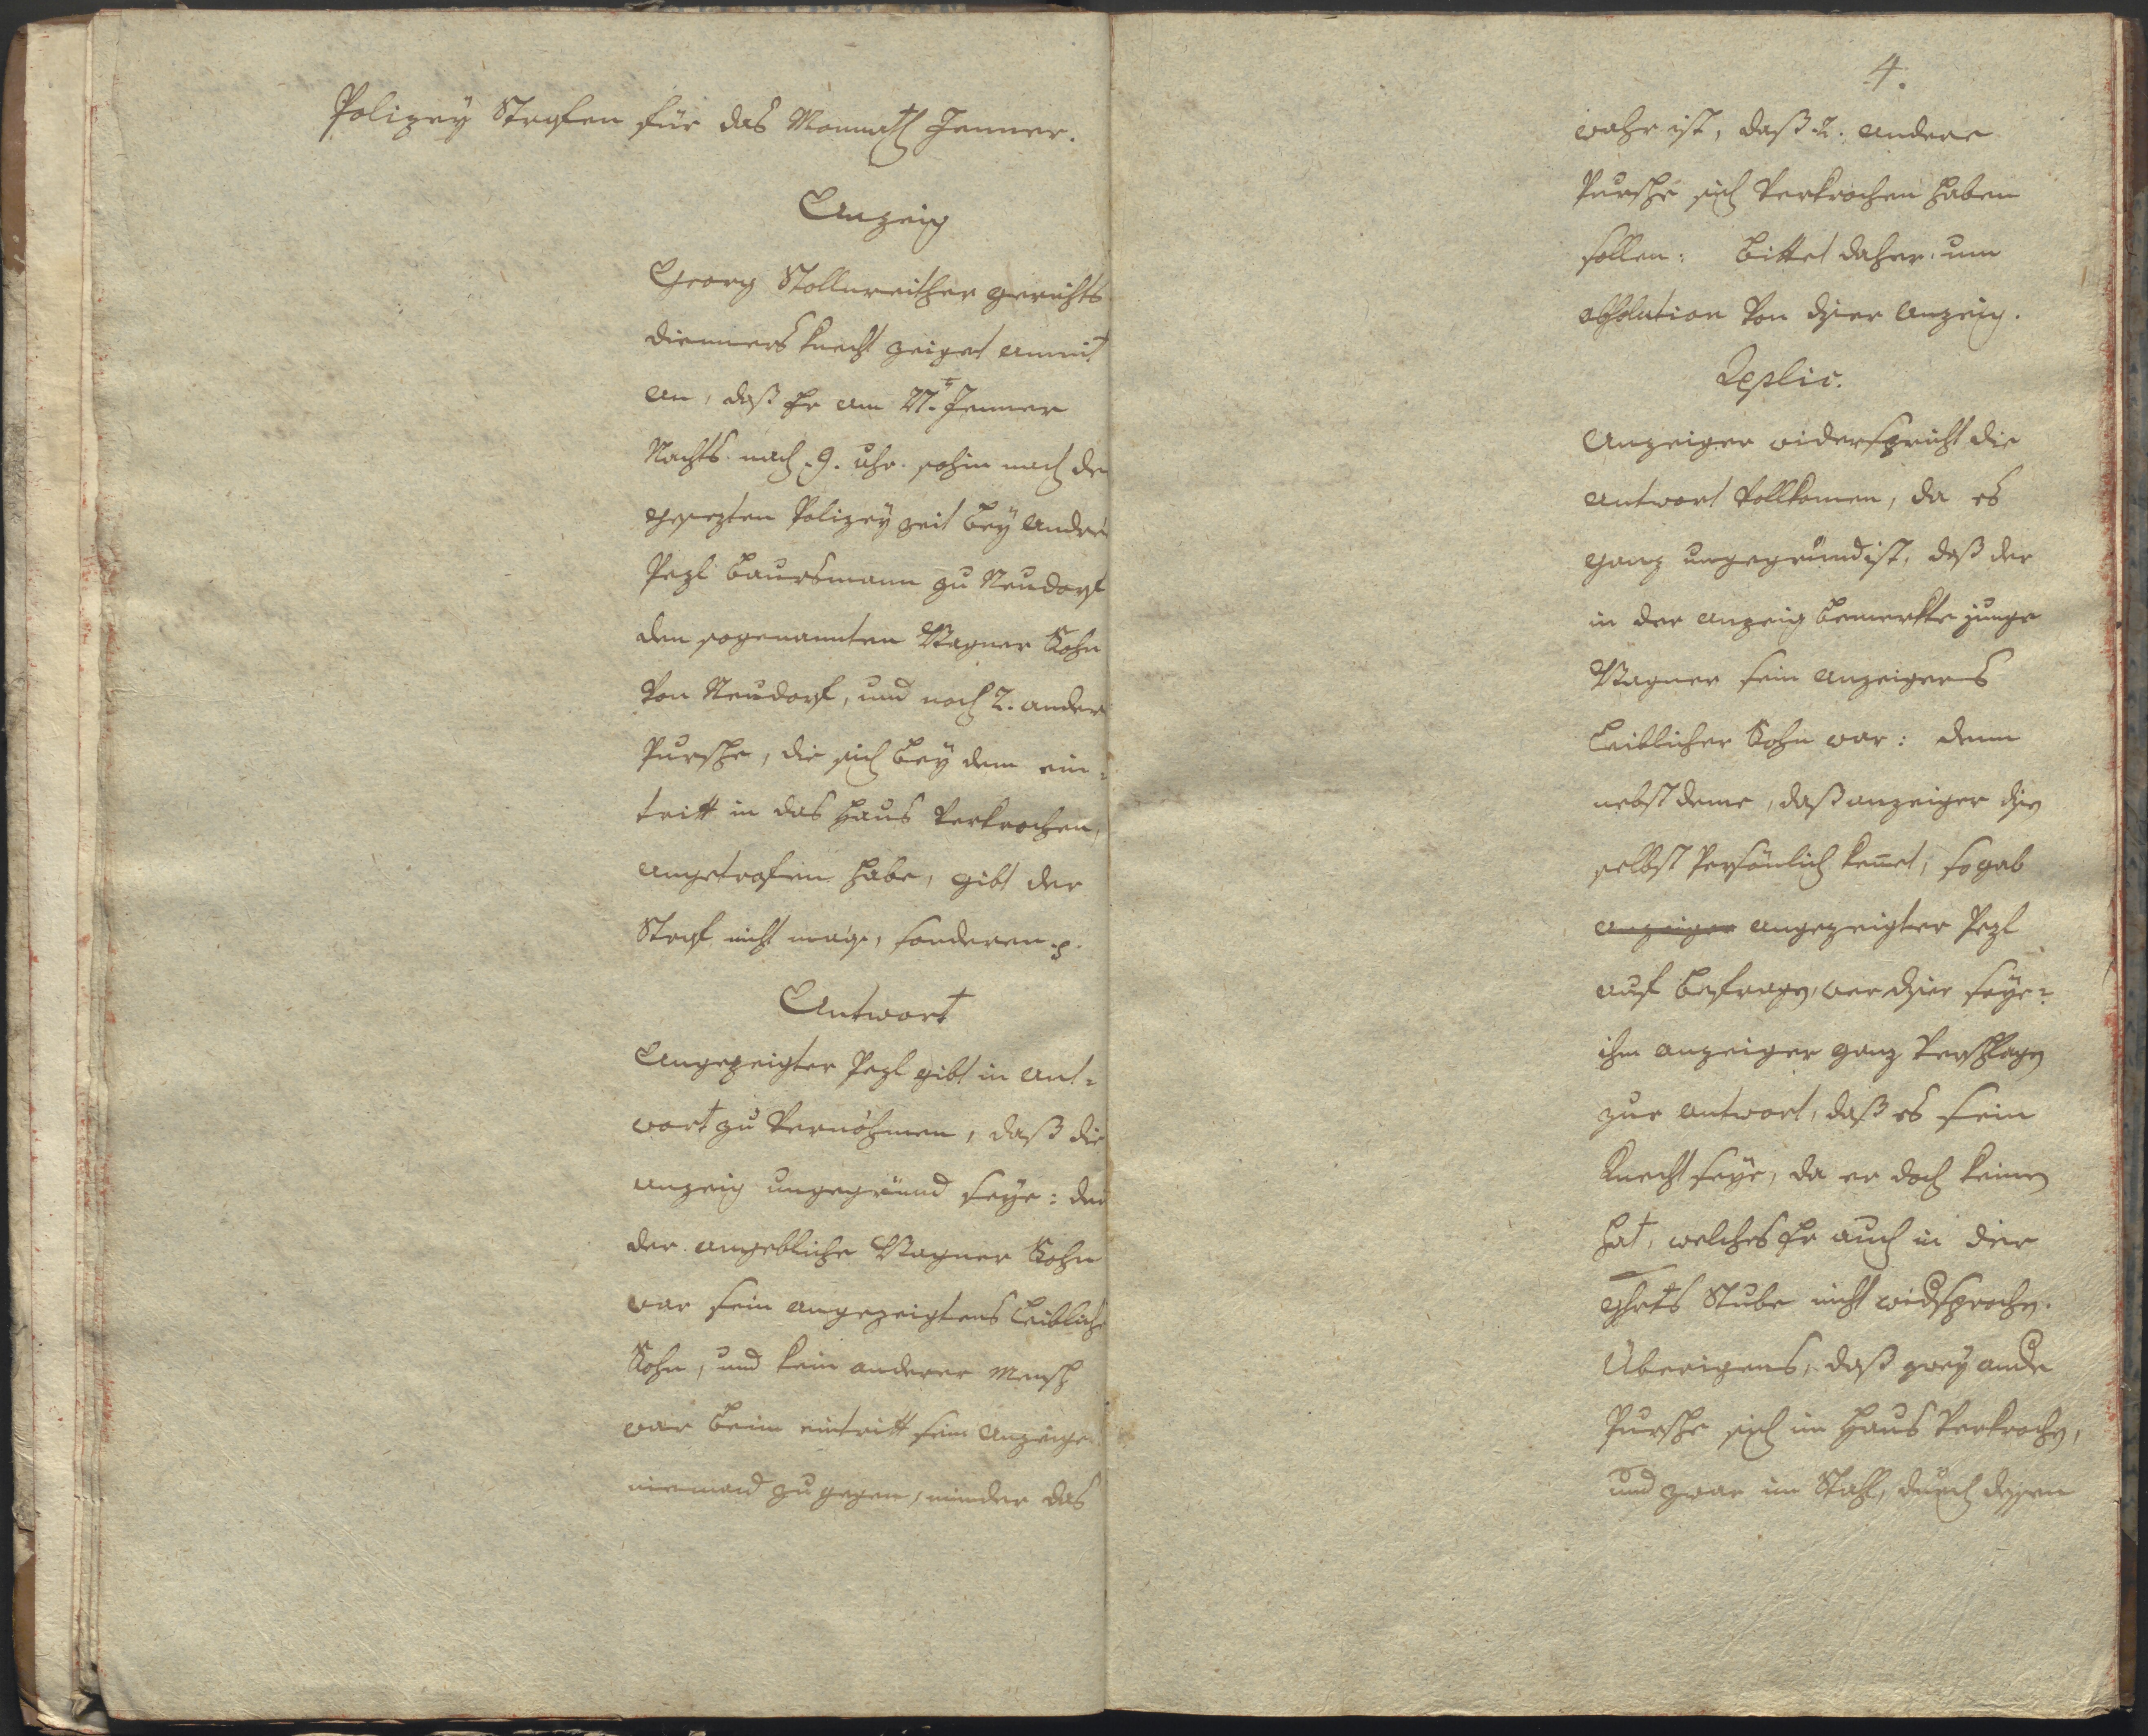 Polizeÿ Strafen für das Monnath Jenner.
Anzeig
Georg Stollnreither gerichts
dienners knecht zeiget anmit
an, daß Er am 27.t Jenner
Nachts nach 9. uhr. sohin nach der
gesezten Polizeÿ zeit beÿ Andree
Pezl Baursmann zu Neudorf
den sogenannten Wagner Sohn
von Neudorf, und noch 2. andere
Pursche, die sich beÿ dem ein=
tritt in das Haus verkrochen,
angetrofen habe, gibt der
Straf nicht maaß, sonderen p.
Antwort
Angezeigter Pezl gibt in Ant=
wort zu vernöhmen, daß die
anzeig ungegründ seÿe: den
der angebliche Wagner Sohn
war sein angezeigtens leiblicher
Sohn, und kein anderer Mensch
war beim eintritt sein Anzeigers
niemand zu gegen, minder das
4.
wahr ist, daß 2. andere
Pursche sich verkrochen haben
sollen: bittet daher um
absolution von dser Anzeig.
Replic.
Anzeiger widerspricht die
antwort vollkomen, da es
ganz ungegründ ist, daß der
in der anzeig bemerkte junge
Wagner sein anzeigers
leiblicher Sohn war: denn
nebst deme, daß anzeiger dsen
selbst persönlich kennet, so gab
anzeiger angezeigter Pezl
auf befragen, wer dser seÿe?
ihm anzeiger ganz verschlagen
zur antwort, daß es sein
Knecht seÿe, da er doch keinen
hat, welches Er auch in der
ghrts Stube nicht widsprochen.
Überigens, daß zweÿ andre
Pursche sich im Haus verkrochen,
und zwar im Stahl, durch dessen